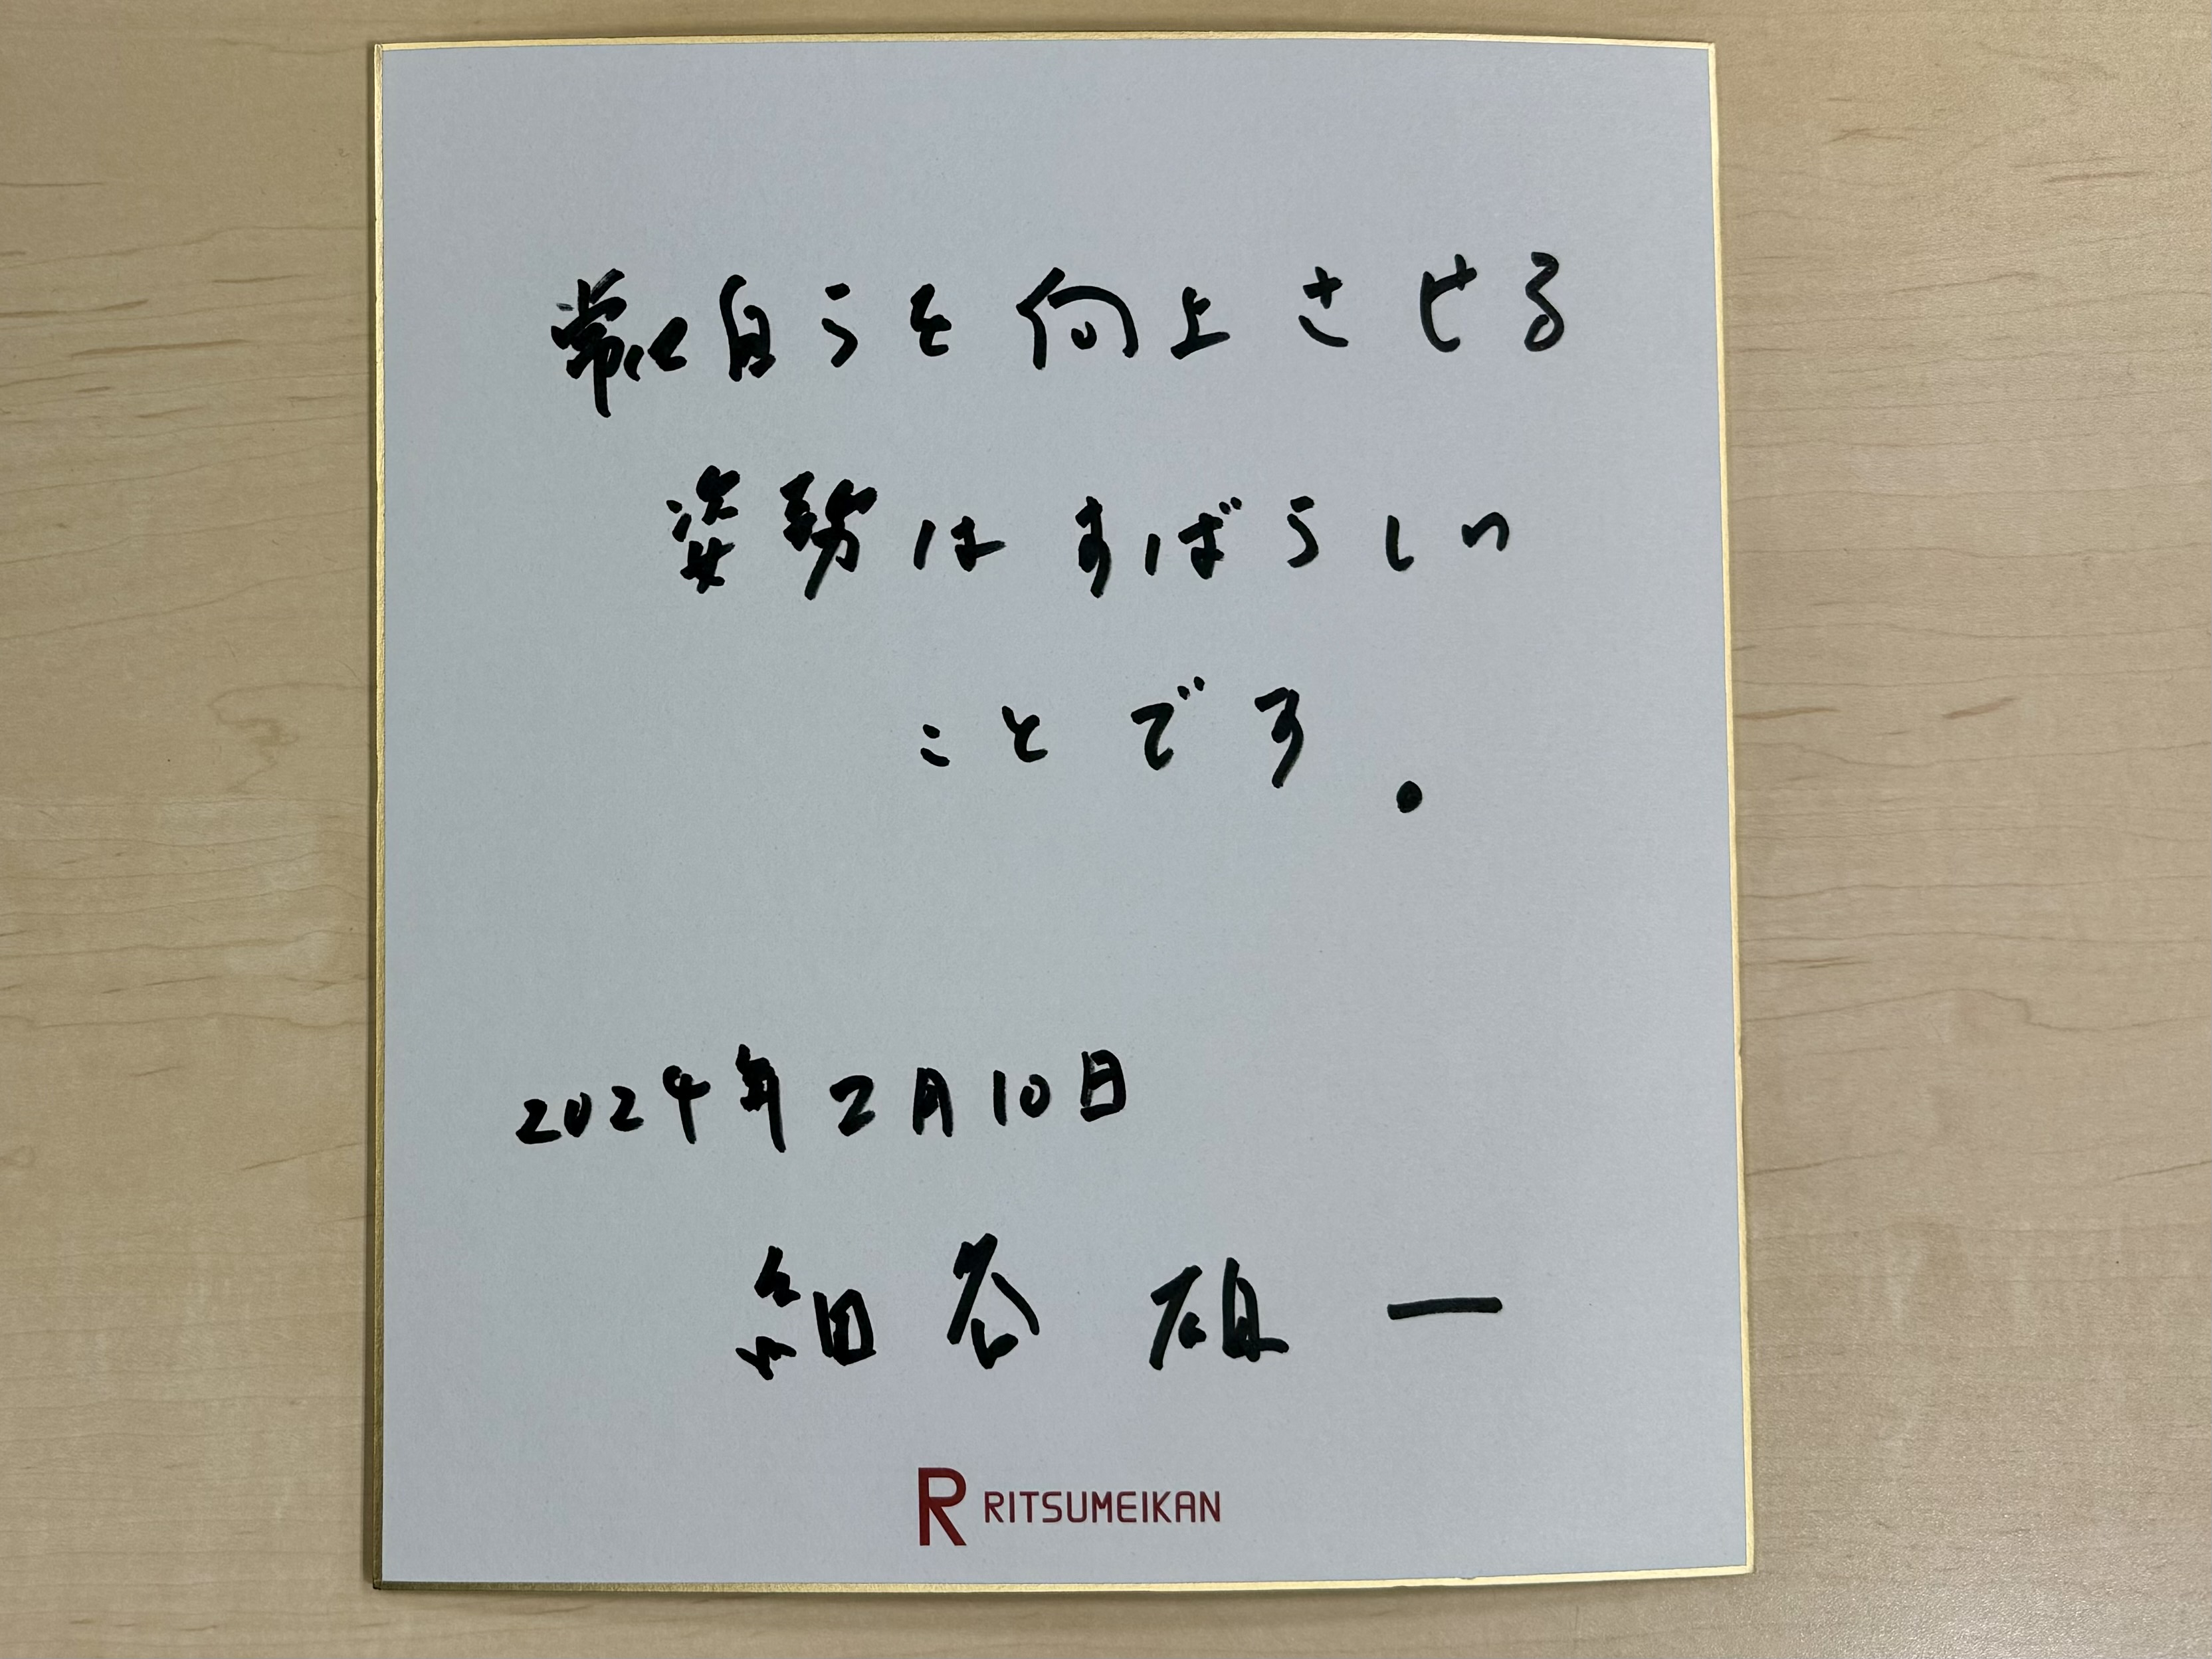 常に自らを向上させる
姿勢はすばらしい
ことです.
2024年2月10日
細谷 雄一
R RITSUMEIKAN